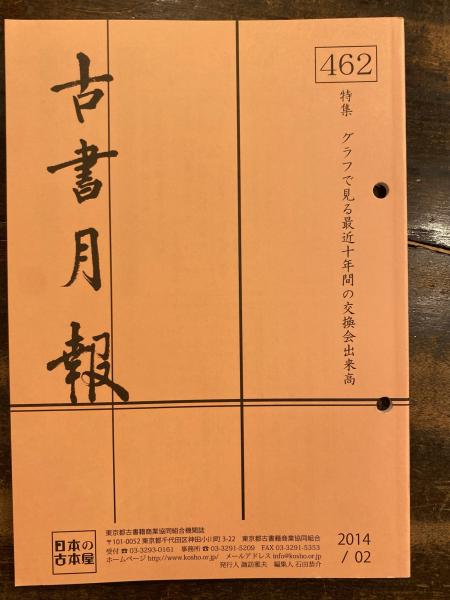 462
特集 グラフで見る最近十年間の交換会出来高
古書月報
日本の
古本屋
東京都古書籍商業協同組合機関誌
〒101-0052 東京都千代田区神田小川町 3-22 東京都古書籍商業協同組合
受付 ☎ 03-3293-0161 事務所 ☎ 03-3291-5209 FAX 03-3291-5353
ホームページ http://www.kosho.or.jp/ メールアドレス info@kosho.or.jp
発行人 諏訪雅夫 編集人 石田恭介
2014
/ 02